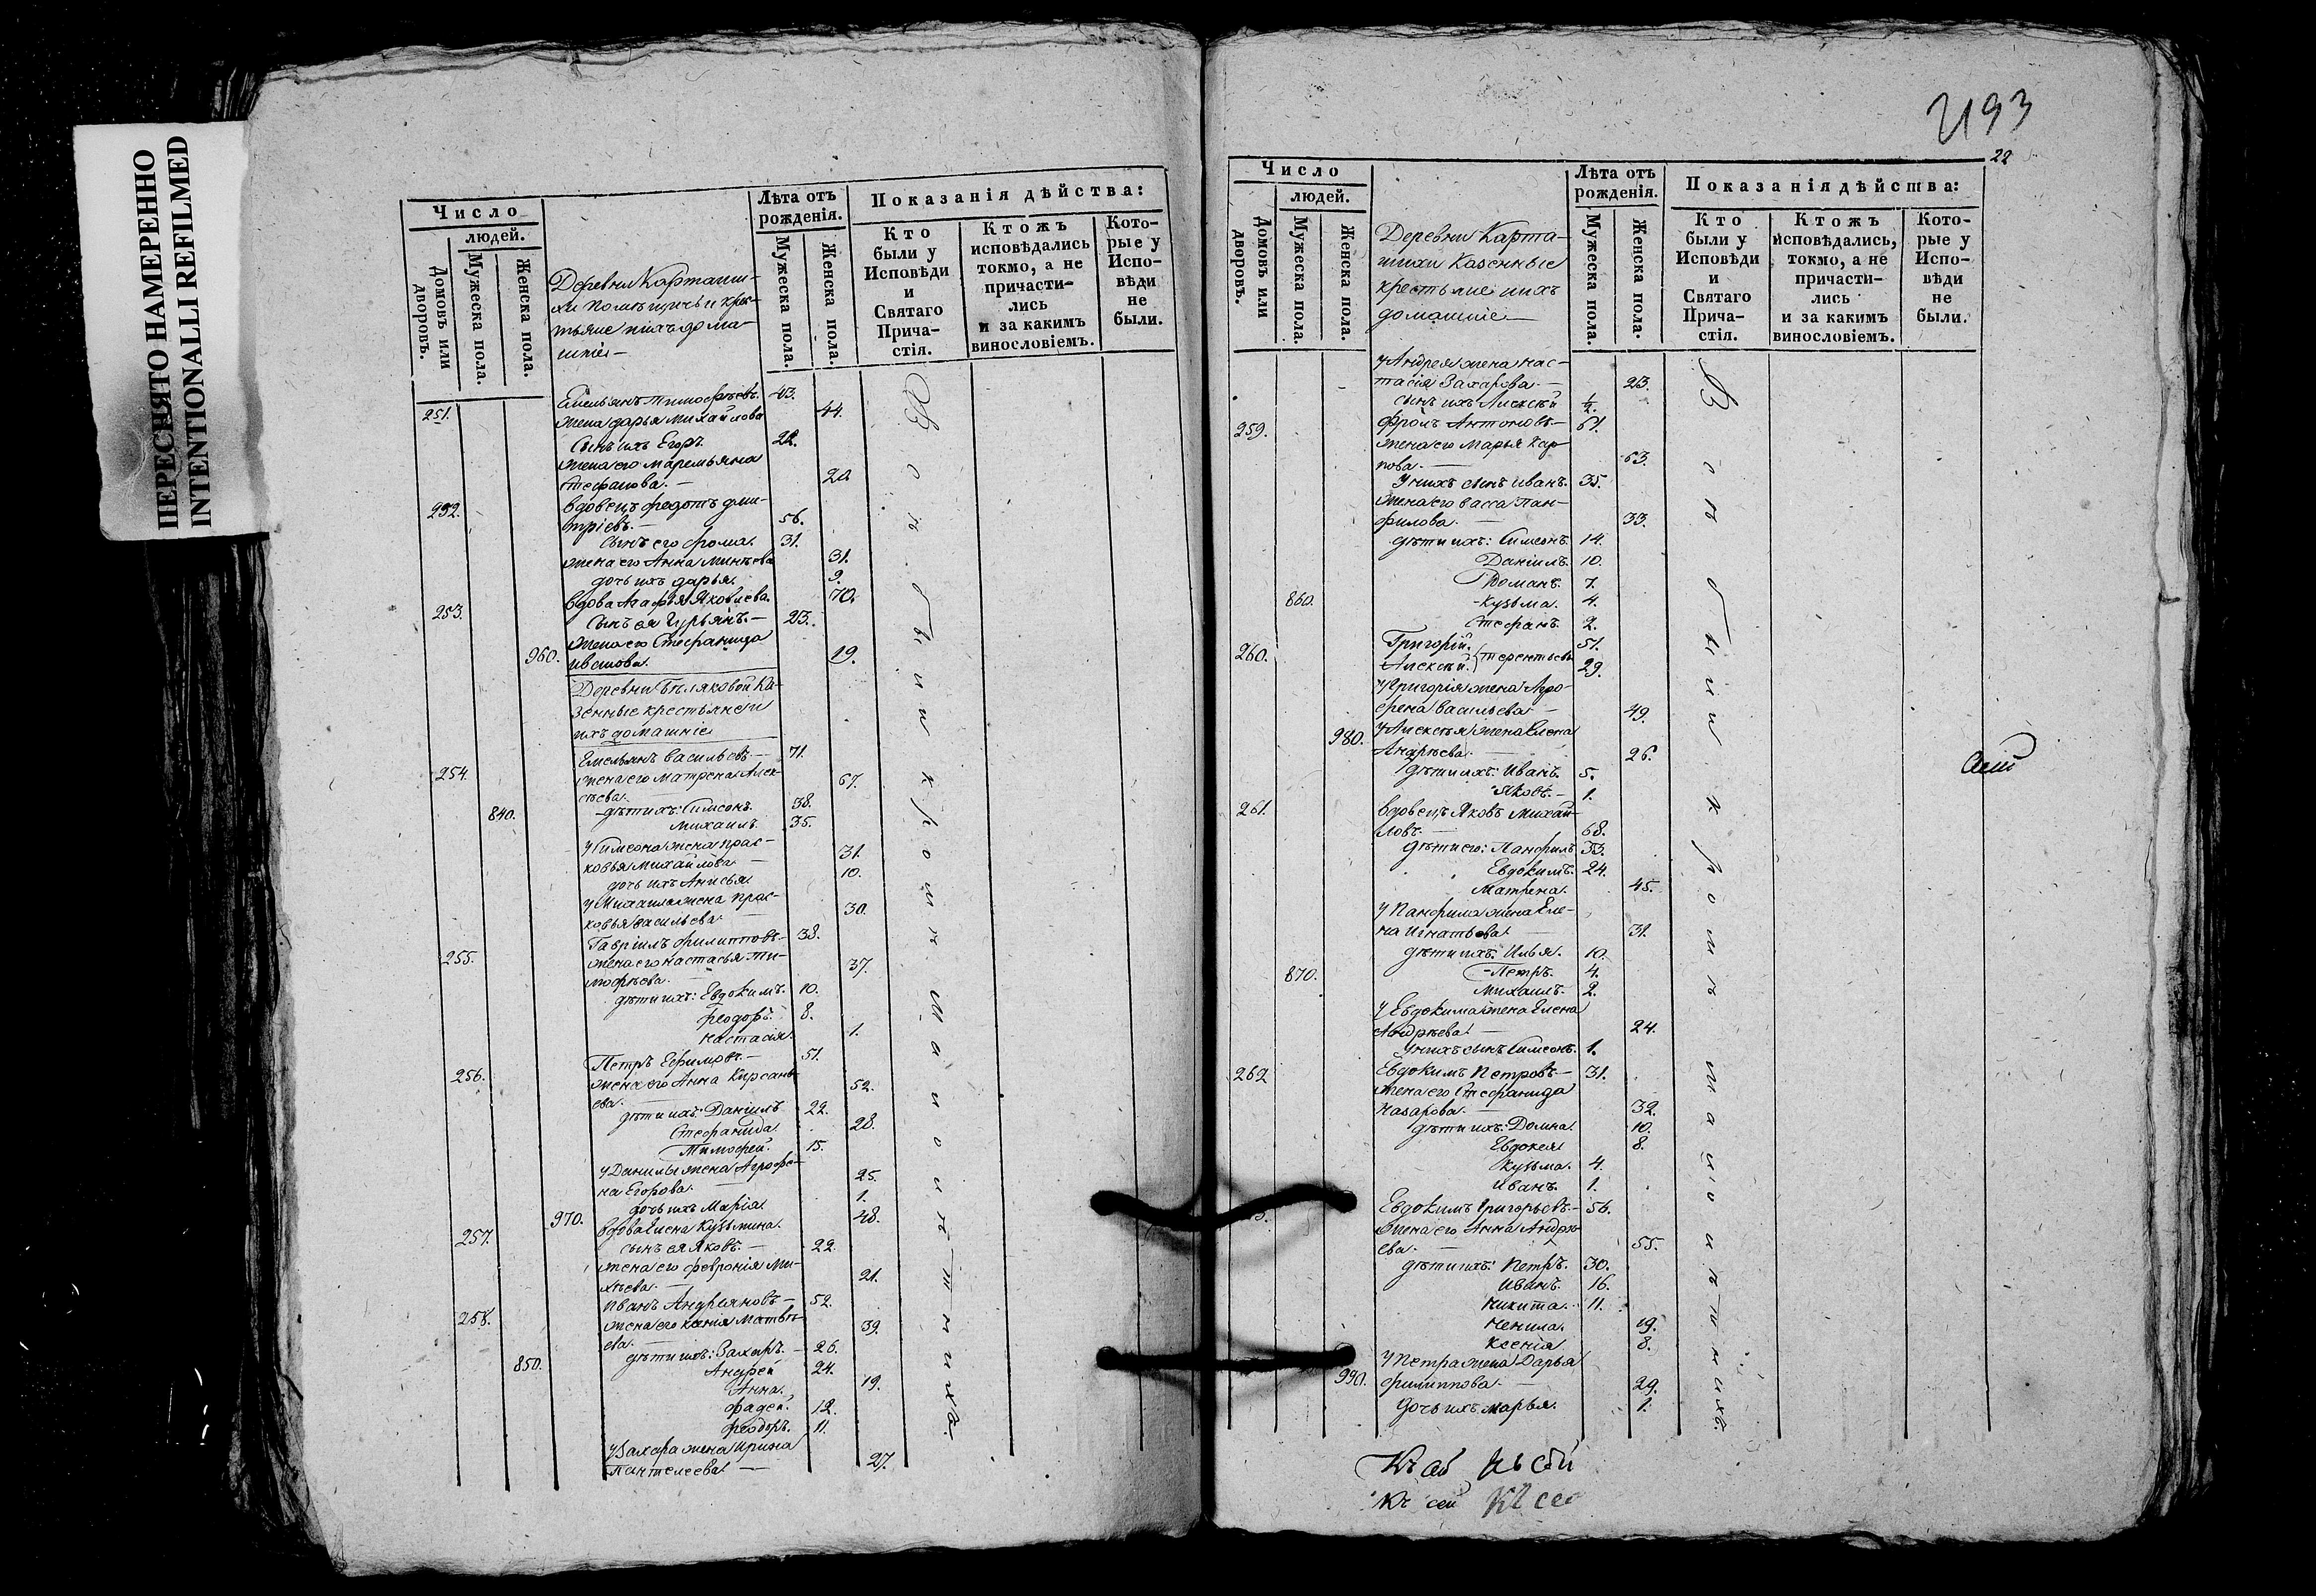 ПЕРЕСНЯТО НАМЕРЕННО
INTENTIONALLI REFILMED
Число
людей.
Домовъ или дворовъ.
Мужеска пола.
Женска пола.
Деревни Карташи-
хи помѣщичьи крес-
тьяне и ихъ дома-
шніе
Лѣта отъ рожденія.
Мужеска пола.
Женска пола.
Показанія дѣйства:
Кто были у Исповѣди и Святаго Прича-стія.
Ктожъ исповѣдались токмо, а не причасти-лись и за какимъ винословіемъ.
Кото-рые у Испо-вѣди не были.
251. Емельянъ Тимофѣевъ. 43.
жена Дарья Михайлова 44.
Сынъ ихъ Егоръ 22.
жена его Маремьяна
Стефанова. 20.
252. Вдовецъ Федотъ Дми-
тріевъ. 56.
Сынъ его Фома. 31.
жена его Анна Минѣева 31.
дочь ихъ Дарья. 9.
253. Вдова Агафія Яковлева. 70.
Сынъ ея Гурьянъ. 23.
жена его Стефанида
960. Иванова. 19.
Деревни Бѣляковой Ка-
зенные крестьяне и
ихъ домашніе
254. Емельянъ Васильевъ 71.
жена его Матрена Алек-
сѣева. 67.
840. дѣти ихъ: Симеонъ. 38.
Михаилъ. 35.
у Симеона жена Прас-
ковья Михайлова 31.
дочь ихъ Анисья. 10.
у Михаила жена Прас-
ковья Васильева 30.
255. Гавріилъ Филипповъ 38.
жена его Настасья Ти-
мофѣева. 37.
дѣти ихъ: Евдокимъ. 10.
Феодоръ. 8.
Настасія. 1.
256. Петръ Ефимовъ. 51.
жена его Анна Кирсань-
ева. 52.
дѣти ихъ: Даніилъ 22.
Стефанида 28.
Тимофей. 15.
у Данилы жена Агрофе-
на Егорова. 25.
дочь ихъ Марія 1.
257. 970. Вдова Елена Кузьмина. 48.
сынъ ея Яковъ. 22.
жена его Февронія Ми-
хѣева. 21.
258. Иванъ Андрьяновъ 52.
жена его Ксенія Матвѣ-
ева. 39.
850. дѣти ихъ: Захаръ. 26.
Андрей 24.
Анна. 19.
Фадей. 12.
Феодоръ. 11.
у Захара жена Ирина
Пантелеева 27.
Всѣ были кромѣ малолѣтнихъ.
2193
22
Число
людей.
Домовъ или дворовъ.
Мужеска пола.
Женска пола.
Деревни Карта-
шихи Казенные
крестьяне и ихъ
домашніе
Лѣта отъ рожденія.
Мужеска пола.
Женска пола.
Показанія дѣйства:
Кто были у Исповѣди и Святаго Прича-стія.
Ктожъ исповѣдались, токмо, а не причасти-лись и за какимъ винословіемъ.
Кото-рые у Испо-вѣди не были.
у Андрея жена Нас-
тасія Захарова. 23.
сынъ ихъ Алексѣй ½.
259. Фролъ Антоновъ 61.
жена его Марья Кар-
пова. 63.
У нихъ сынъ Иванъ. 35.
жена его Васса Пан-
филова. 33.
дѣти ихъ: Симеонъ. 14.
Даніилъ. 10.
Романъ. 7.
860. Кузьма. 4.
Стефанъ. 2.
260. Григорій. 51.
Алексѣй. Терентьевы 29.
У Григорія жена Агро-
фена Васильева 49.
980. У Алексѣя жена Елена
Андрѣева. 26.
дѣти ихъ: Иванъ. 5.
Яковъ. 1.
261. Вдовецъ Яковъ Михай-
ловъ. 68.
дѣти его: Панфилъ 33.
Евдокимъ. 24.
Матрена. 45.
У Панфила жена Еле-
на Игнатьева 31.
дѣти ихъ: Илья. 10.
870. Петръ. 4.
Михаилъ. 2.
У Евдокима жена Елена
Андрѣева 24.
У нихъ сынъ Симеонъ. 1.
262 Евдокимъ Петровъ 31.
жена его Стефанида
Назарова. 32.
дѣти ихъ: Домна. 10.
Евдокея 8.
Кузьма. 4.
Иванъ. 1.
Евдокимъ Григорьевъ. 56.
жена его Анна Андрѣ-
ева. 55.
дѣти ихъ: Петръ. 30.
Иванъ. 16.
Никита. 11.
Ненила. 19.
Ксенія 8.
990. У Петра жена Дарья
Филиппова. 29.
Дочь ихъ Марья. 1.
Всѣ были кромѣ малолѣтнихъ.
Къ сей